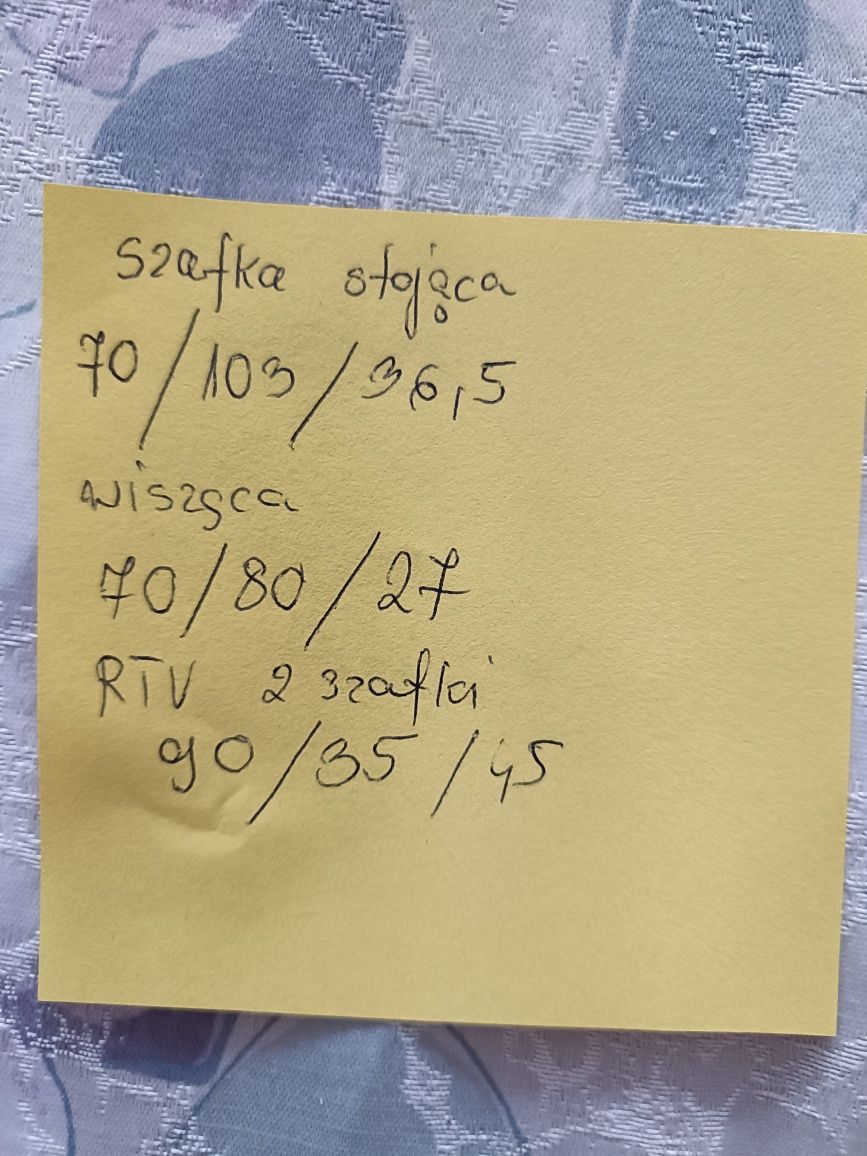 szafka stojąca
70/103/36,5
wisząca
70/80/27
RTV 2 szafki
90/35/45